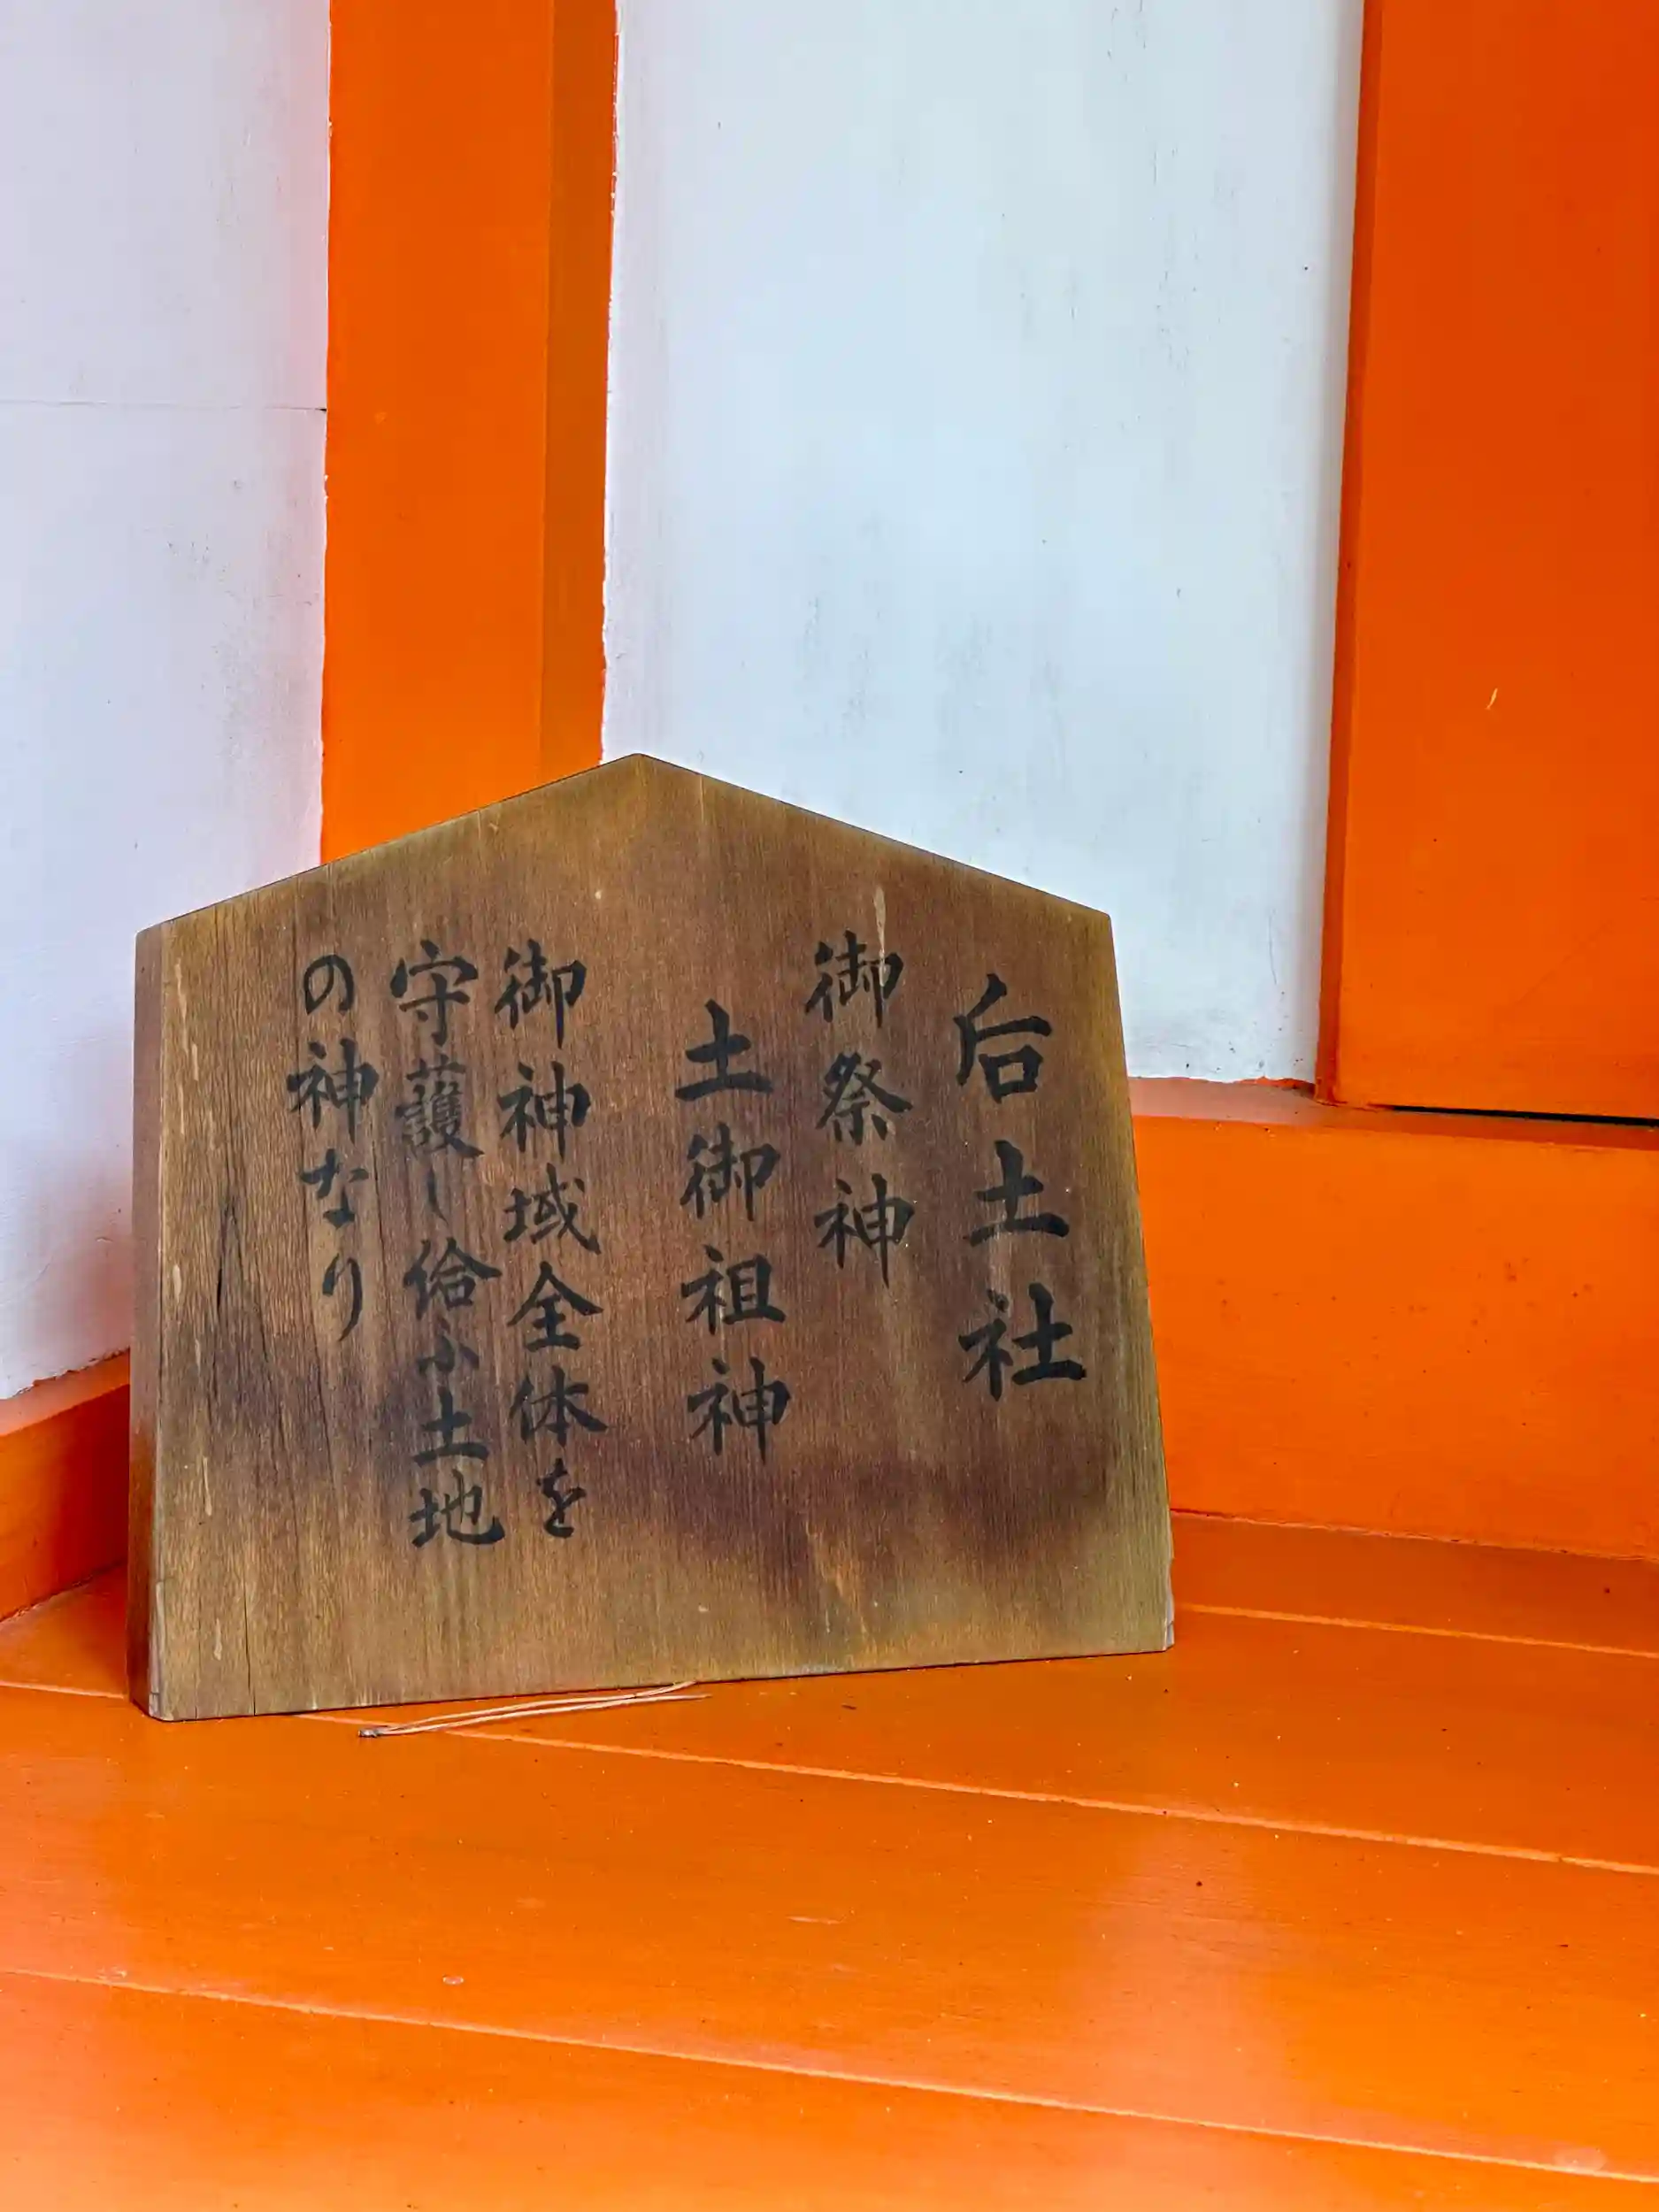 后土社
御祭神
土御祖神
御神域全体を
守護し給ふ土地
の神なり